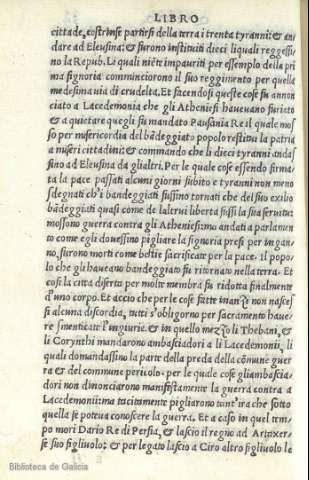 LIBRO
cittade, costrinse partirsi della terra i trenta tyranni: & an
dare ad Eleusina: & furono instituti dieci liquali reggessi
no la Repub. Le quali niẽte impauriti per essempio della pri
ma signoria commincirono il suo reggimento per quella
medesima uia di crudelta. Et facendosi queste cose fu annon
ciato a Lacedemonia che gli Atheniesi havevano furiato
& a quietare quegli fu mandato Pausãnia Re il quale mos
so per misericordia del bãdeggiato popolo restitui la patria
a miseri cittadini: & commando che li dieci tyranni andas
sino ad Eleusina da gli altri. Per le quale cose essendo firma
ta la pace passati alcuni giorni subito e tyranni non meno
sdegnati ch'i bandeggiati fussino tornati che dei suo exilio
bãdeggiati quasi come de laltrui liberta fussi la sua servitu:
mossono guerra contra gli Atheniesi: ma andati a parlamen
to come egli dovessino pigliare la signoria presi per ingan
no, furono morti come bestie sacrificate per la pace. Il popo
lo che gli havevano bandeggiato fu ritornato nella terra. Et
cosi la citta diserta per molte membra fu ridotta finalmente
d'uno corpo. Et accio che per le cose fatte inanzi non nasces
si alcuna discordia, tutti s'obligorno per sacramento have
re smenticate l'ingiurie. & in quello mezzo li Thebani, &
li Corynthi mandarono ambasciadori a li Lacedemonii, li
quali domandassino la parte della preda della cõmune guer
ra & del commune pericolo. per le quale cose gli ambascia
dori non dinonciarono manifestamente la guerra contra a
Lacedemonii: ma tacitamente pigliarono tant'ira che sotto
quella se poteva conoscere la guerra. Et a caso in quel tem
po mori Dario Re di Persia, & lascio il regno ad Artaxer-
se suo figliuolo; & per legato lascio a Ciro altro figliuolo le
Biblioteca de Galicia